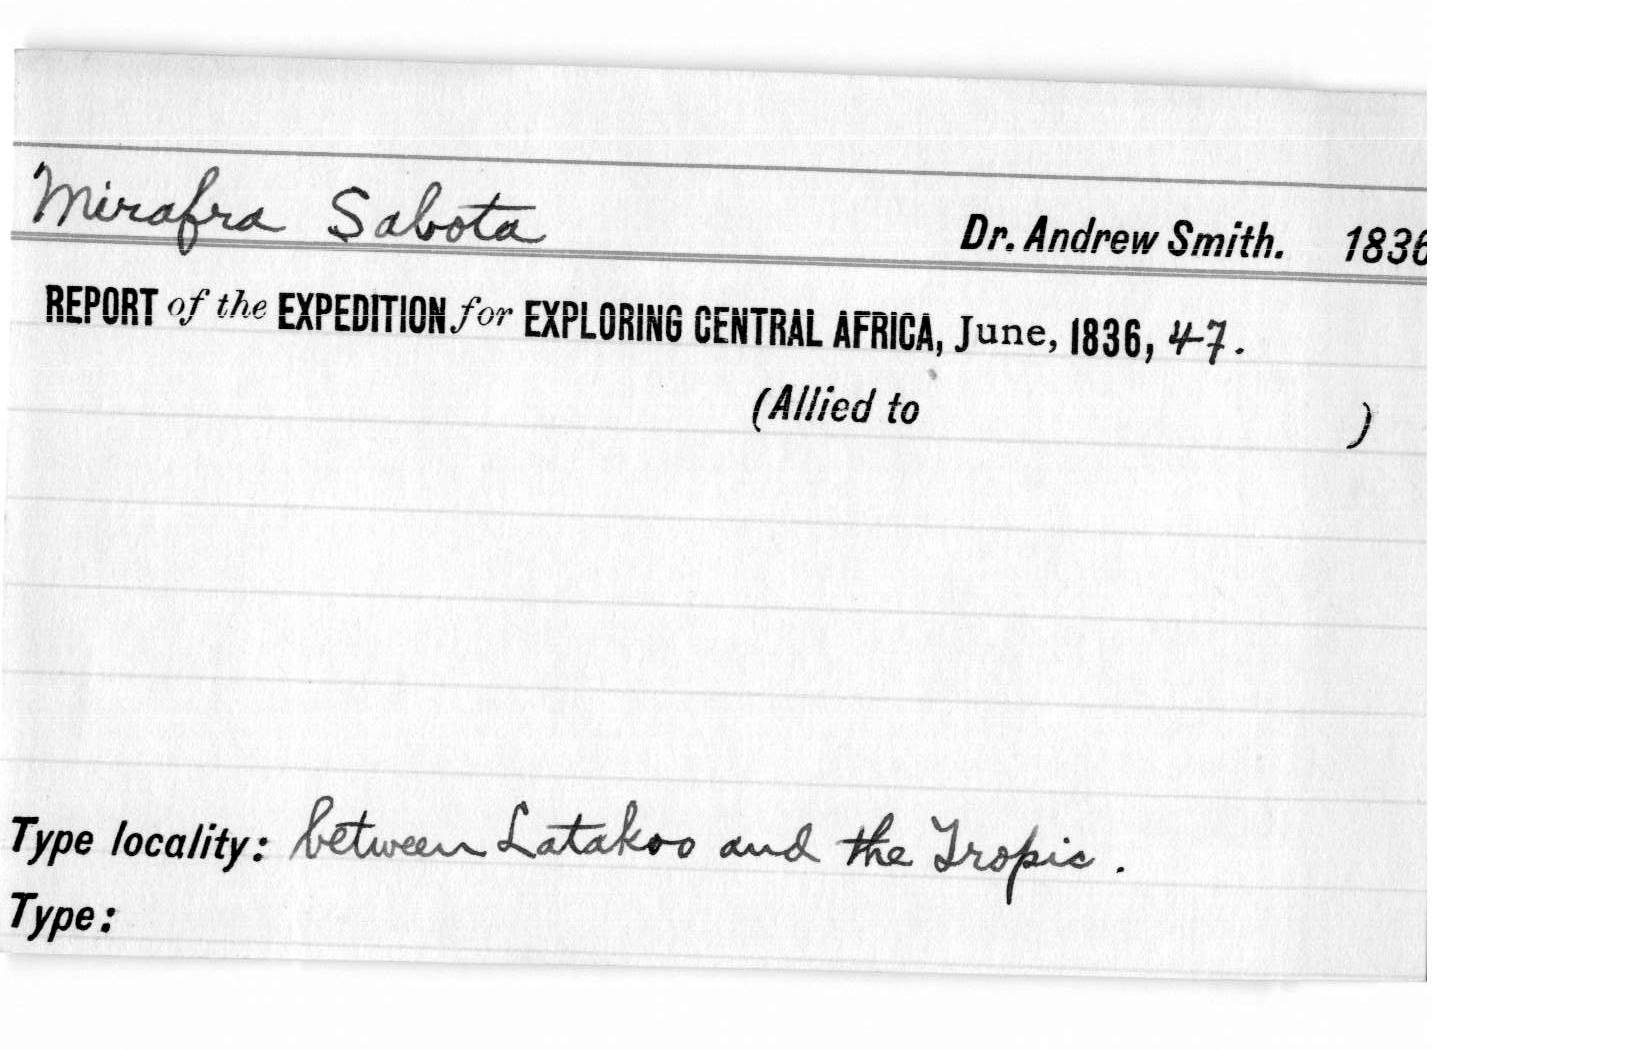 Mirafra Sabota Dr. Andrew Smith. 1836
REPORT of the EXPEDITION for EXPLORING CENTRAL AFRICA, June, 1836, 47.
(Allied to )
Type locality: between Latakoo and the Tropic.
Type: